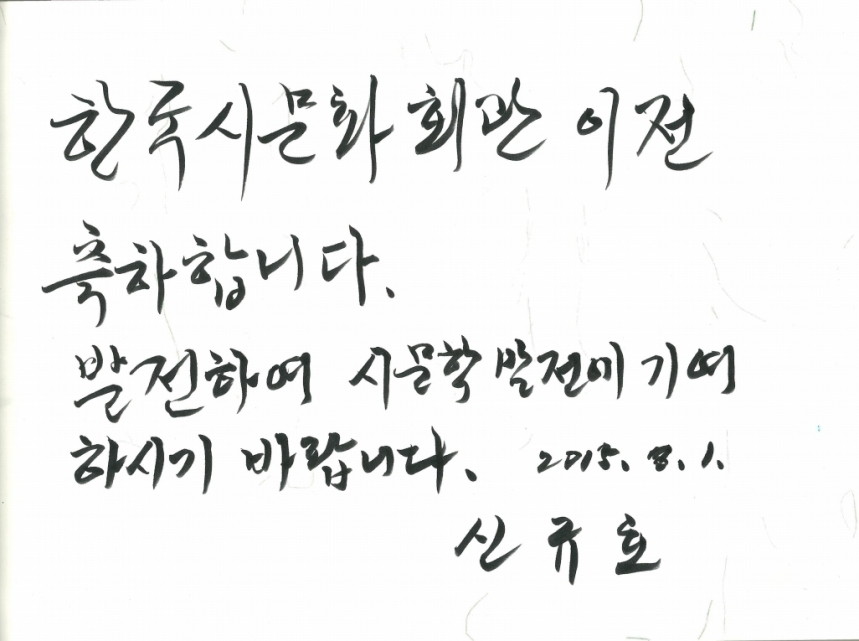 한국시문화회관 이전
축하합니다.
발전하여 시문학 발전에 기여
하시기 바랍니다. 2015. 8. 1.
신규호